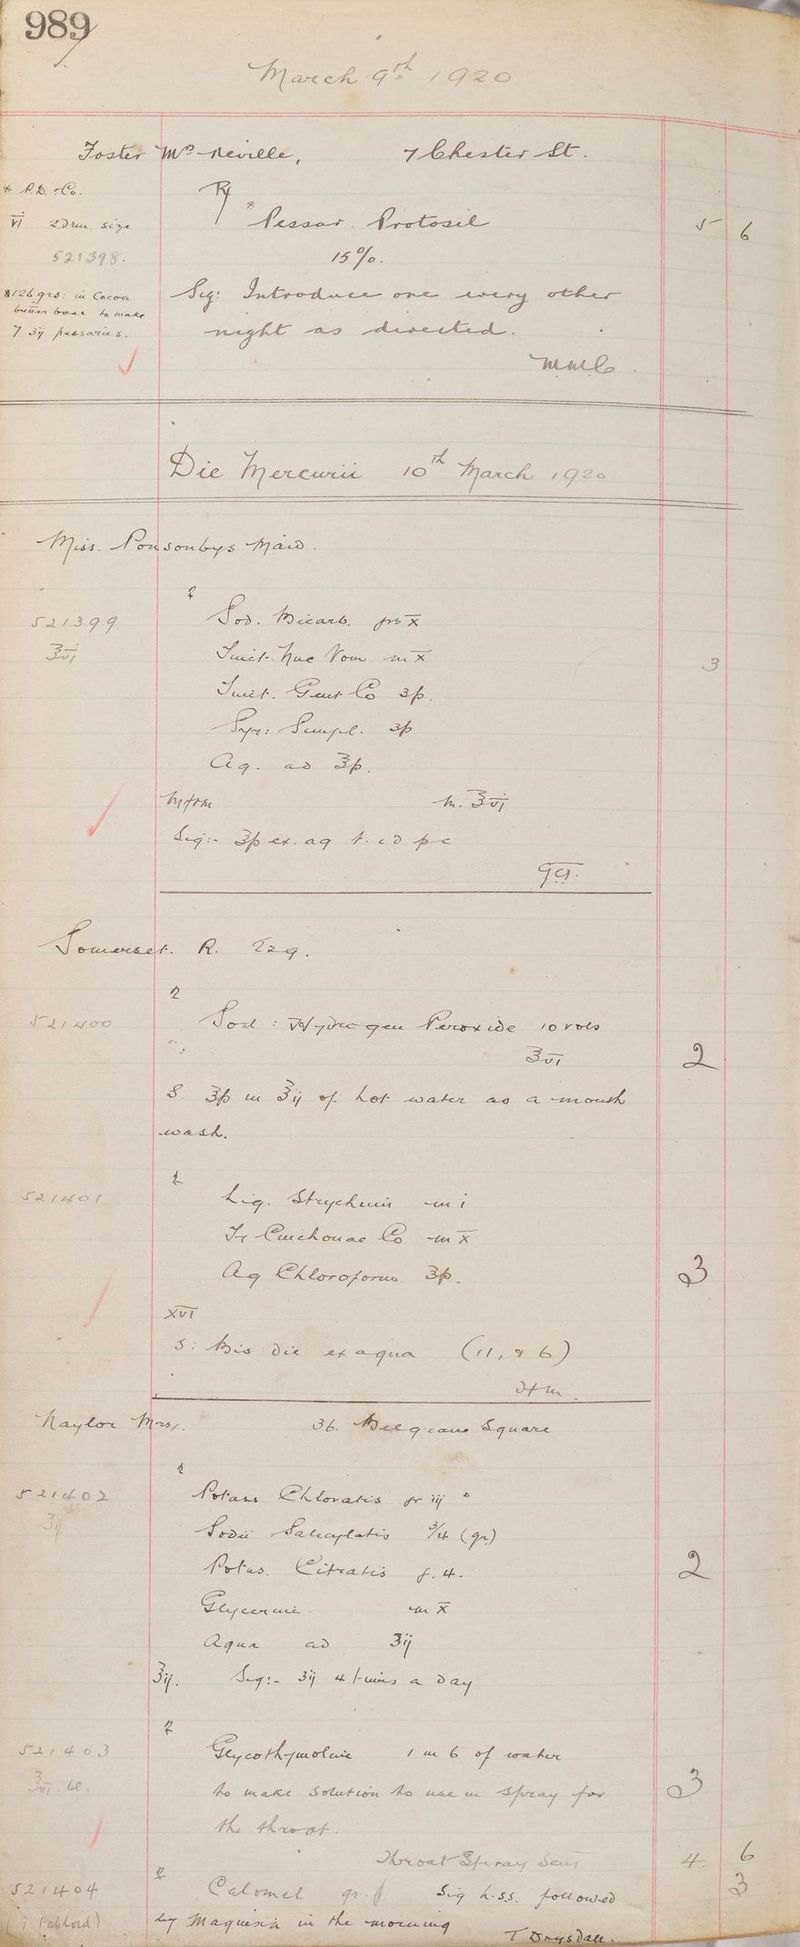 989
March 9th 1920
Foster Mrs Neville, 7 Chester St.
* P.D. & Co. ℞
vi 2 Drm. size * Pessar. Protosil 5 6
521398. 15%.
126 grs: in Cocoa Sig: Introduce one every other
butter base to make
7 ʒij pessaries. night as directed.
Die Mercurii 10th March 1920
Miss. Ponsonbys Maid.
521399 Sod. Bicarb. grs x
℥vi Tinct. Nuc Vom m x 3
Tinct. Gent Co ʒp.
Syr: Simpl. ʒp
Aq. ad ℥p.
m. ℥vi
Sig:- ℥p ex. aq t. i d p c
Somerset. R. Esq.
521400 Sol: Hydrogen Peroxide 10 vols
℥vi 2
S. ℥p in ℥ij of hot water as a mouth
wash.
521401 Liq. Strychnin m i
Tr Cinchonae Co m x
Aq Chloroform ℥p. 3
XVI
S: Bis Die ex aqua (11, & 6)
Naylor Mrs, 36. Belgrave Square
521402 Potass Chloratis gr iij
Sodii Salicylatis 3/4 (gr)
Potas. Citratis g. 4. 2
Glycerini. m x
Aqua ad ʒij
℥ij. Sig:- ʒij 4 times a day
521403 Glycothymoline 1 in 6 of water
to make solution to use in spray for 3
the throat.
Throat Spray Sent 4 6
521404 Calomel gr. Sig h.s.s. followed 3
(i Tabloid) by Magnesia in the morning
T Drysdale.